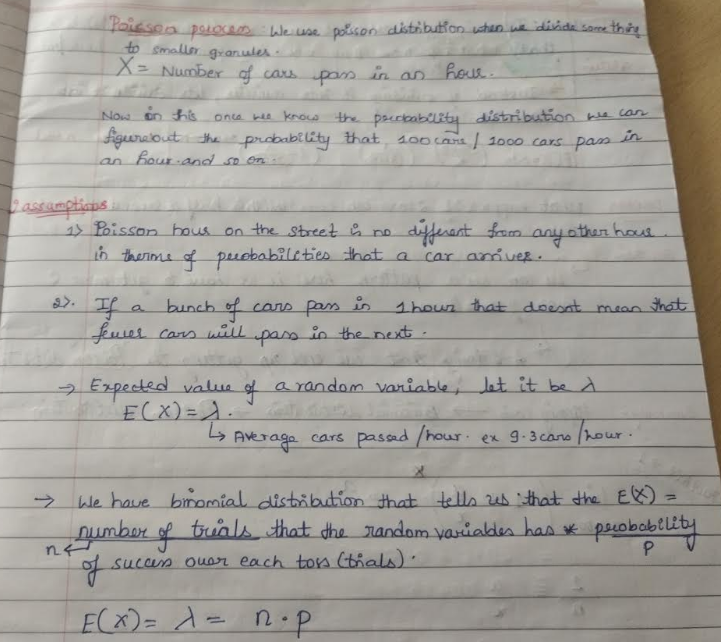 Poisson process: We use poison distribution when we divide something
to smaller granules.
X = Number of cars pass in an hour.
Now in this once we know the porobability distribution we can
figureout the probability that 100 cars / 1000 cars pass in
an hour and so on.
2 assamptions
1) Poisson hour on the street is no different from any other hour.
in therms of porobabilities that a car arrives.
2). If a bunch of cars pass in 1 hour that doesnt mean that
fewer cars will pass in the next.
→ Expected value of a random variable, let it be λ
E(X) = λ.
↳ Average cars passed / hour. ex 9.3 cars / hour.
→ We have binomial distribution that tells us that the E(X) =
number of trials that the random variables has * porobability
n ← of success over each toss (trials). p
E(X) = λ = n · p